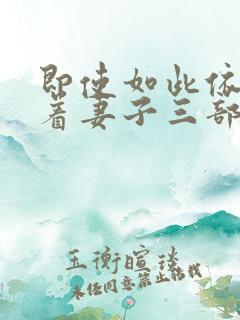 即使如此依
着妻子三部
玉衡暄琰
未任同意禁止转找